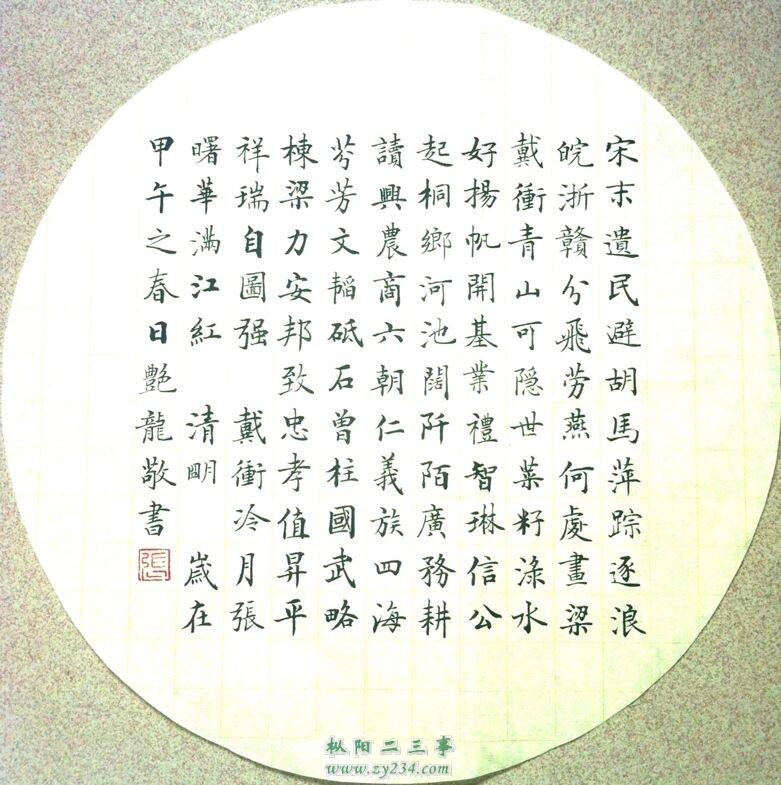 宋末遺民避胡馬萍踪逐浪
皖浙贛分飛劳燕何處畫梁
戴衝青山可隐世菜籽渌水
好揚帆開基業禮智琳信公
起桐鄉河池闊阡陌廣務耕
讀興農商六朝仁義族四海
芬芳文韬砥石曾柱國武略
棟梁力安邦致忠孝值昇平
祥瑞自圖强 戴衝冷月張
曙華满江紅 清明 歲在
甲午之春日艷龍敬書
張
枞阳二三事
www.zy234.com